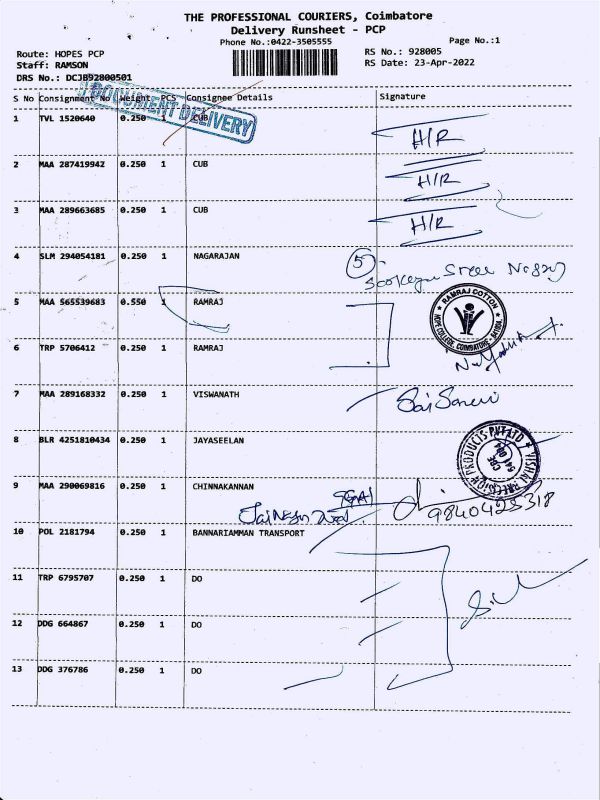 THE PROFESSIONAL COURIERS, Coimbatore
Delivery Runsheet - PCP
Phone No.:0422-3505555
Page No.:1
Route: HOPES PCP
RS No.: 928005
Staff: RAMSON
RS Date: 23-Apr-2022
DRS No.: DCJB92800501
DOCUMENT DELIVERY
S No Consignment No Weight PCS Consignee Details Signature
1 TVL 1520640 0.250 1 CUB H/R
2 MAA 287419942 0.250 1 CUB H/R
3 MAA 289663685 0.250 1 CUB H/R
4 SLM 294054181 0.250 1 NAGARAJAN 5
5 MAA 565539683 0.550 1 RAMRAJ
RAMRAJ COTTON
HOPE COLLEGE, COIMBATORE
6 TRP 5706412 0.250 1 RAMRAJ
7 MAA 289168332 0.250 1 VISWANATH
8 BLR 4251810434 0.250 1 JAYASEELAN
PRODUCTS PVT LTD
CBE
9 MAA 290069816 0.250 1 CHINNAKANNAN
9840425318
10 POL 2181794 0.250 1 BANNARIAMMAN TRANSPORT
11 TRP 6795707 0.250 1 DO
12 DDG 664867 0.250 1 DO
13 DDG 376786 0.250 1 DO